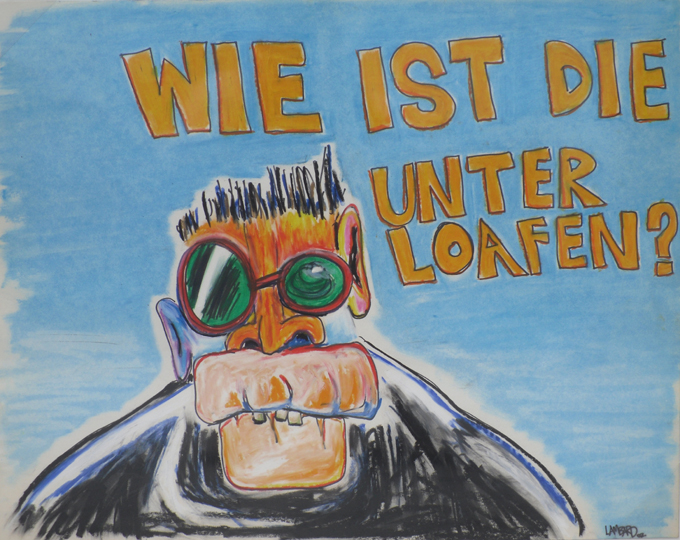 WIE IST DIE
UNTER
LOAFEN?